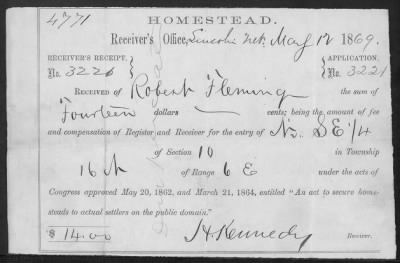 4771
HOMESTEAD.
Receiver's Office, Lincoln Neb. May 12 1869.
RECEIVER'S RECEIPT, APPLICATION,
No. 3221 No. 3221
RECEIVED of Robert Fleming the sum of
Fourteen dollars — cents; being the amount of fee
and compensation of Register and Receiver for the entry of N½ SE¼
of Section 10 in Township
16 N of Range 6 E under the acts of
Congress approved May 20, 1862, and March 21, 1864, entitled "An act to secure home-
steads to actual settlers on the public domain."
$ 14.00 Kennedy Receiver.